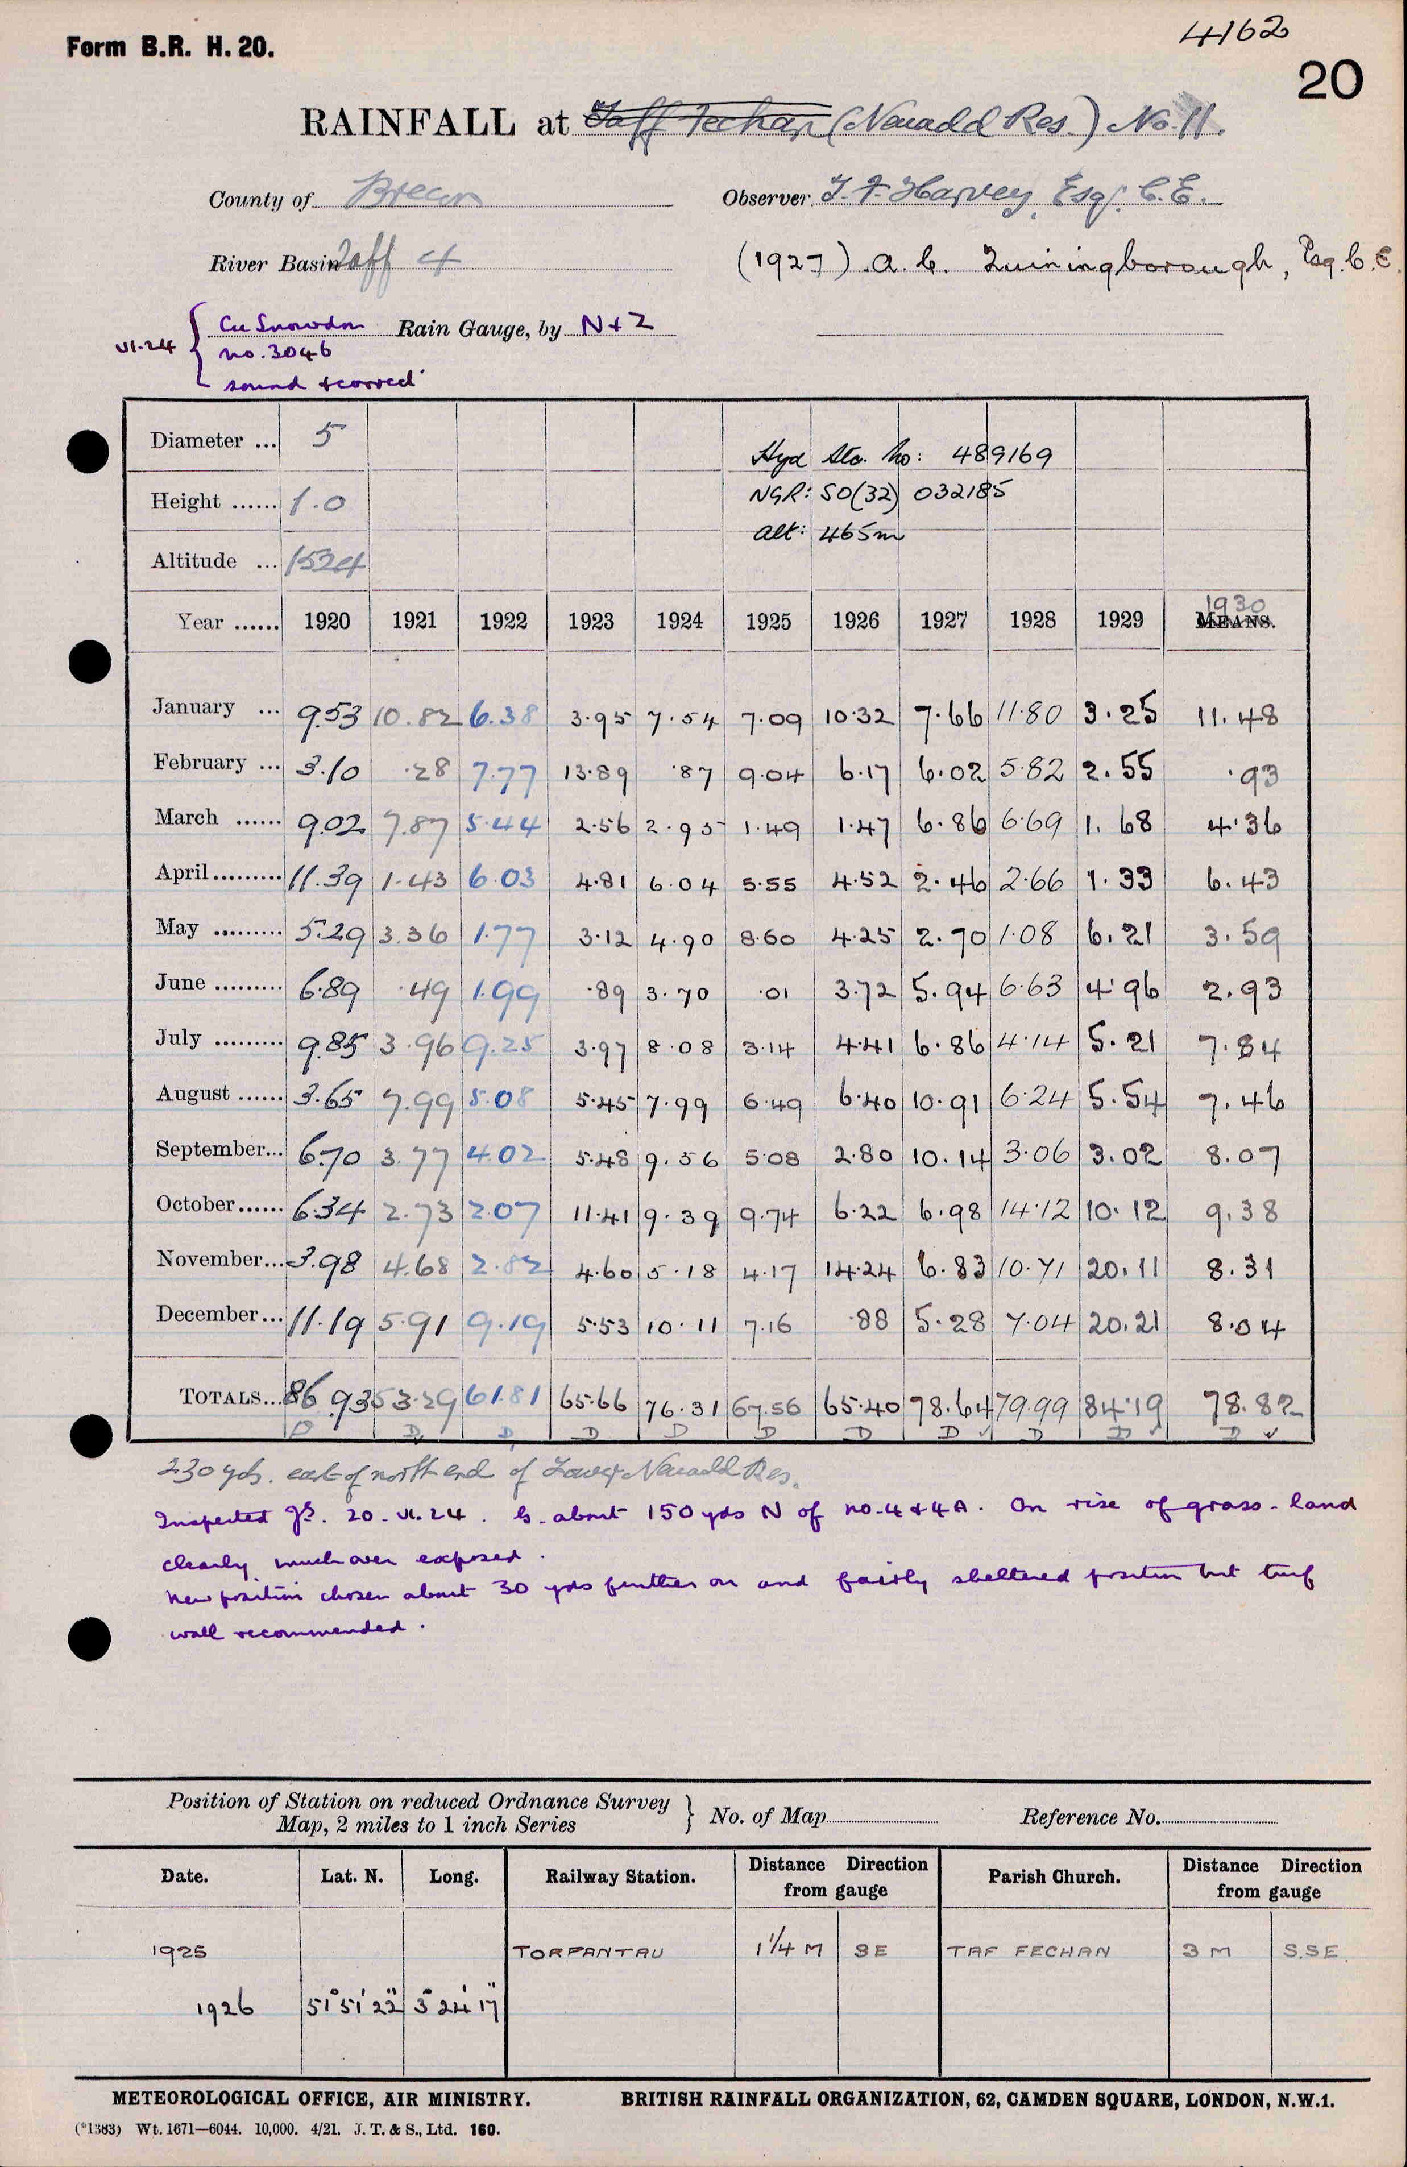 4162
Form B.R. H. 20.
20
RAINFALL at Taff Fechan (Neuadd Res.) No. 11.
County of Brecon Observer T. F. Harvey, Esq. C.E.
River Basin Taff 4 (1927) A. C. Quiningborough, Esq. C.E.
VI.24 { Cu Snowdon Rain Gauge, by N+Z
no. 3046
sound + correct
Diameter ... 5 Hyd Sta. No: 489169
Height ...... 1.0 NGR: SO(32) 032185
Alt: 465m
Altitude ... 1524
Year ...... 1920 1921 1922 1923 1924 1925 1926 1927 1928 1929 MEANS. 1930
January ... 9.53 10.82 6.38 3.95 7.54 7.09 10.32 7.66 11.80 3.25 11.48
February ... 3.10 .28 7.77 13.89 .87 9.04 6.17 6.02 5.82 2.55 .93
March ...... 9.02 7.87 5.44 2.56 2.95 1.49 1.47 6.86 6.69 1.68 4.36
April ......... 11.39 1.43 6.03 4.81 6.04 5.55 4.52 2.46 2.66 1.33 6.43
May ......... 5.29 3.36 1.77 3.12 4.90 8.60 4.25 2.70 1.08 6.21 3.59
June ......... 6.89 .49 1.99 .89 3.70 .01 3.72 5.94 6.63 4.96 2.93
July ......... 9.85 3.96 9.25 3.97 8.08 3.14 4.41 6.86 4.14 5.21 7.84
August ...... 3.65 7.99 5.08 5.45 7.99 6.49 6.40 10.91 6.24 5.54 7.46
September... 6.70 3.77 4.02 5.48 9.56 5.08 2.80 10.14 3.06 3.02 8.07
October...... 6.34 2.73 2.07 11.41 9.39 9.74 6.22 6.98 14.12 10.12 9.38
November... 3.98 4.68 2.82 4.60 5.18 4.17 14.24 6.83 10.71 20.11 8.31
December... 11.19 5.91 9.19 5.53 10.11 7.16 .88 5.28 7.04 20.21 8.04
TOTALS... 86.93 53.29 61.81 65.66 76.31 67.56 65.40 78.64 79.99 84.19 78.82
D D D D D D D D ✓ D D ✓ D ✓
230 yds. east of north end of Lower Neuadd Res.
Inspected 20.VI.24. G. about 150 yds N of no. 4 + 4A. On rise of grass-land
clearly much over exposed.
New position chosen about 30 yds further on and fairly sheltered position but turf
wall recommended.
Position of Station on reduced Ordnance Survey
Map, 2 miles to 1 inch Series } No. of Map Reference No.
Date. Lat. N. Long. Railway Station. Distance Direction from gauge Parish Church. Distance Direction from gauge
1925 TORPANTAU 1 1/4 M SE TAF FECHAN 3 M S.SE
1926 51° 51' 22" 3° 24' 17"
METEOROLOGICAL OFFICE, AIR MINISTRY. BRITISH RAINFALL ORGANIZATION, 62, CAMDEN SQUARE, LONDON, N.W.1.
(*1383) Wt. 1671—6044. 10,000. 4/21. J. T. & S., Ltd. 160.